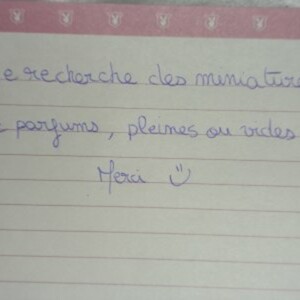 e recherche des miniature
parfums, pleines ou vides
Merci :)